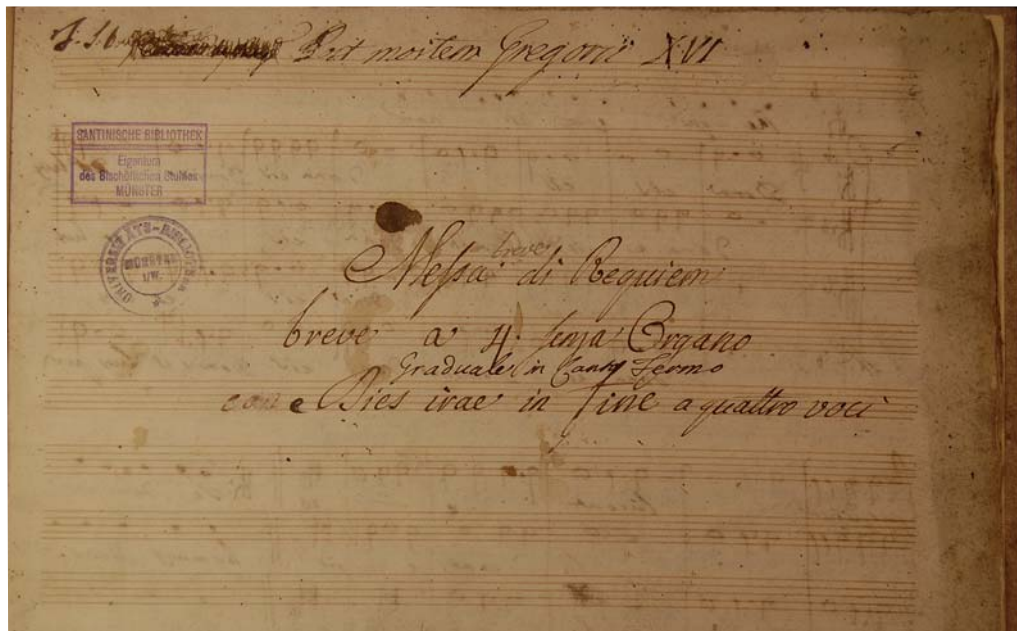 Post mortem Gregorii XVI
SANTINISCHE BIBLIOTHEK
Eigentum
des Bischöflichen Stuhles
MÜNSTER
UNIVERSITÄTS-BIBLIOTHEK
MÜNSTER
i/W.
breve
Messa di Requiem
breve a 4. senza Organo
Graduale in Canto Fermo
con e Dies irae in fine a quattro voci